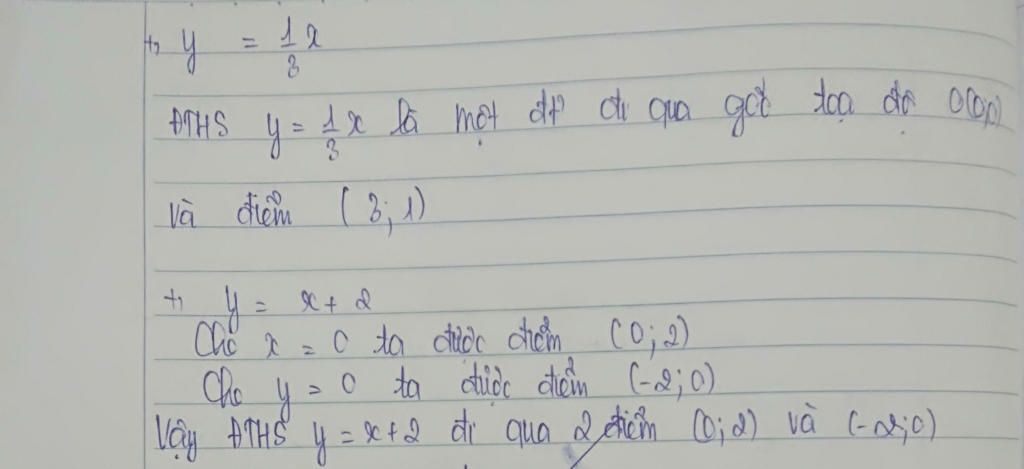 +, y = 1/3 x
ĐTHS y = 1/3 x là một đt đi qua gốc toạ độ O(0,0)
và điểm (3; 1)
+, y = x + 2
Cho x = 0 ta được điểm (0; 2)
Cho y = 0 ta được điểm (-2; 0)
Vậy ĐTHS y = x + 2 đi qua 2 điểm (0; 2) và (-2; 0)